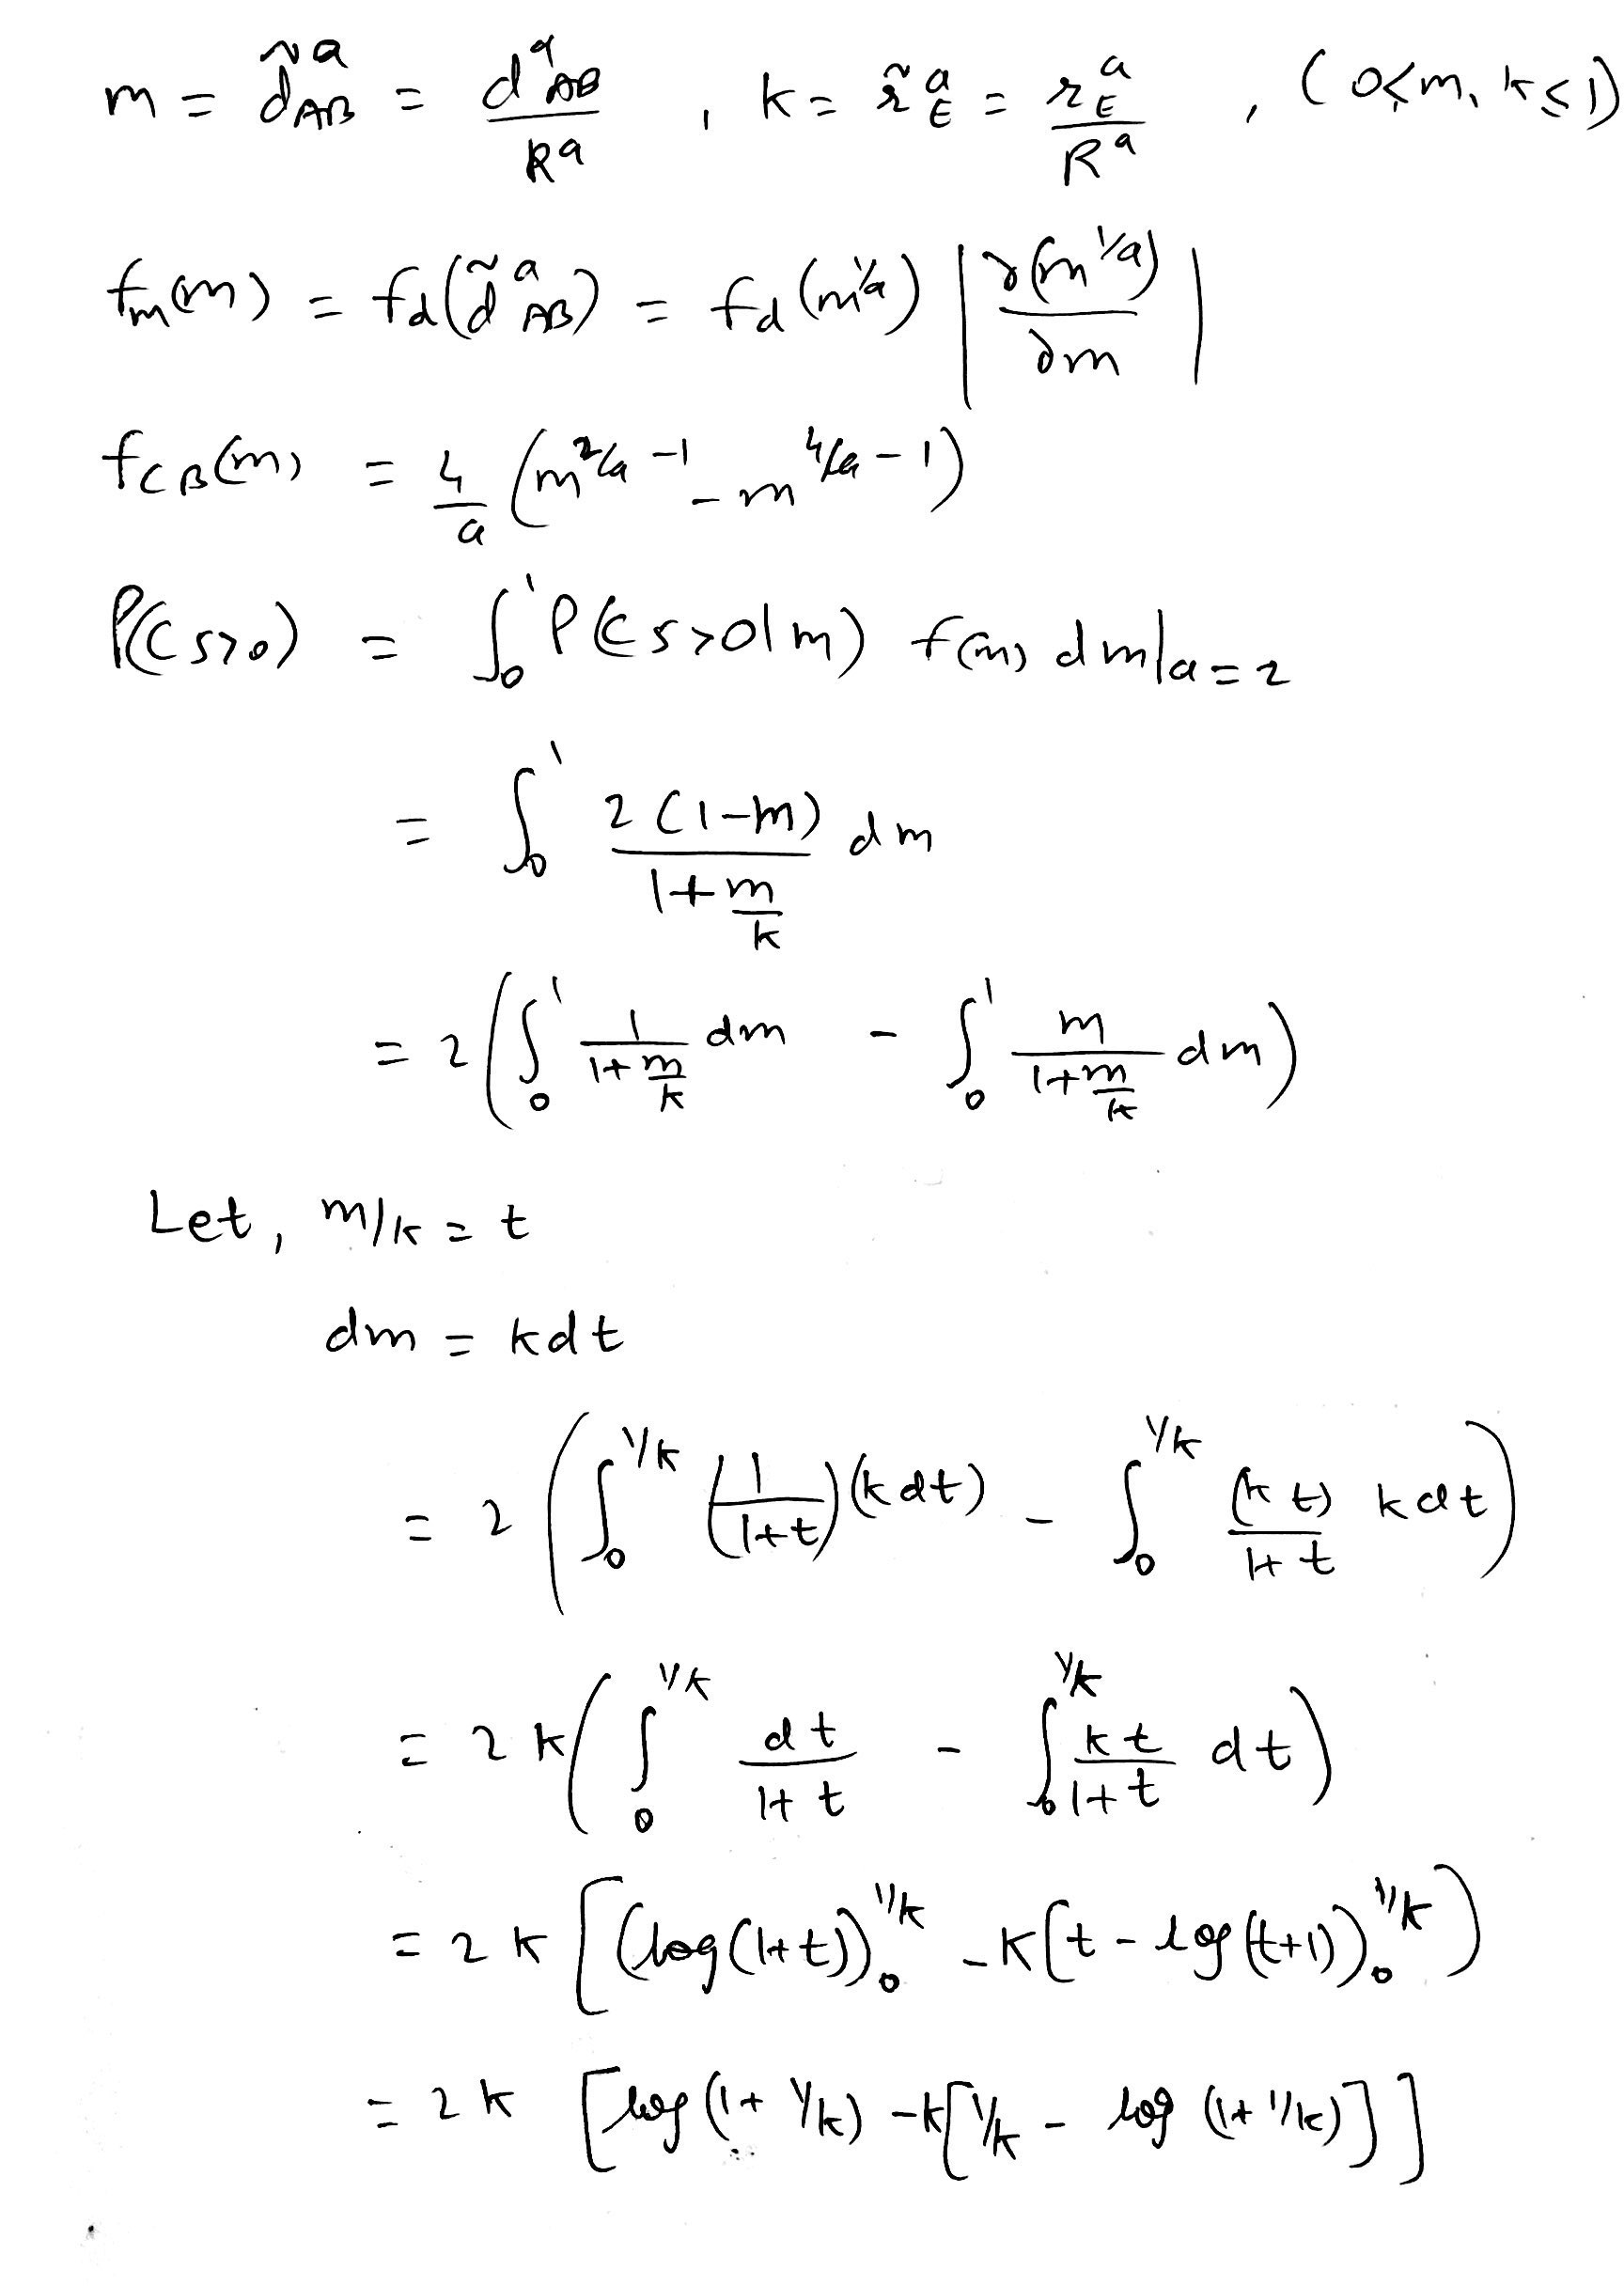 m = d̃ᵃ_AB = dᵃ_AB / Rᵃ , k = r̃ᵃ_E = rᵃ_E / Rᵃ , (0≤m, k≤1)
f_m(m) = f_d(d̃ᵃ_AB) = f_d(m^{1/a}) |∂(m^{1/a}) / ∂m|
f_CB(m) = 4/a (m^{2/a -1} - m^{4/a -1})
P(Cs>0) = ∫₀¹ P(Cs>0|m) f(m) dm|a=2
= ∫₀¹ 2(1-m) / (1+m/k) dm
= 2(∫₀¹ 1/(1+m/k) dm - ∫₀¹ m/(1+m/k) dm)
Let, m/k = t
dm = kdt
= 2(∫₀^{1/k} (1/(1+t))(kdt) - ∫₀^{1/k} (kt)/(1+t) kdt)
= 2k(∫₀^{1/k} dt/(1+t) - ∫₀^{1/k} kt/(1+t) dt)
= 2k[(log(1+t))₀^{1/k} - k[t - log(t+1))₀^{1/k})
= 2k [log(1+1/k) - k[1/k - log(1+1/k)]]